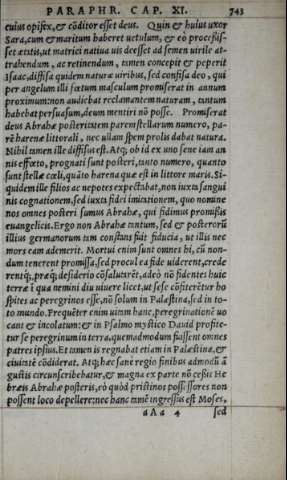 PARAPHR. CAP. XI. 743
cuius opifex, & cōditor esset deus. Quin & huius uxor
Sara, cum & maritum haberet uetulum, & eò processis-
set ætatis, ut matrici natiua uis deesset ad semen uirile at-
trahendum, ac retinendum, tamen concepit et peperit
Isaac, diffisa quidem naturæ uiribus, sed confisa deo, qui
per angelum illi fœtum masculum promiserat in annum
proximum: non audiebat reclamantem naturam, tantum
habebat persuasum, deum mentiri nō posse. Promiserat
deus Abrahæ posteritatem parem stellarum numero, pa-
rē harenæ littorali, nec ullam spem prolis dabat natura.
Nihil tamen ille diffisus est. Atq; ob id ex uno sene iam an
nis effœto, prognati sunt posteri, tanto numero, quanto
sunt stellæ cœli, quāta harena quæ est in littore maris. Si-
quidem ille filios ac nepotes expectabat, non iuxta sangui
nis cognationem, sed iuxta fidei imitationem, quo nomine
nos omnes posteri sumus Abrahæ, qui fidimus promissis
euangelicis. Ergo non Abrahæ tantum, sed & posterorū
illius germanorum tam constans fuit fiducia, ut illis nec
mors eam ademerit. Mortui enim sunt omnes hi, cū non-
dum tenerent promissa, sed procul ea fide uiderent, crede
rentq́;, præq́; desiderio cōsalutarēt, adeò nō fidentes huic
terræ ī qua nemini diu uiuere licet, ut sese cōfiterētur ho
spites ac peregrinos esse, nō solum in Palæstina, sed in to-
to mundo. Frequēter enim uitam hanc, peregrinationē uo
cant & incolatum: & in Psalmo mystico Dauid profite-
tur se peregrinum in terra, quemadmodum fuissent omnes
patres ipsius. Et tamen is regnabat etiam in Palæstina, &
ciuitatē cōdiderat. Atq; hæc sane regio finibus admodū ā
gustis circunscribebatur, & magna ex parte nō cessit He
bræis Abrahæ posteris, eò quòd pristinos possessores non
possent loco depellere: nec hanc tamē ingressus est Moses,
aAa 4 sed